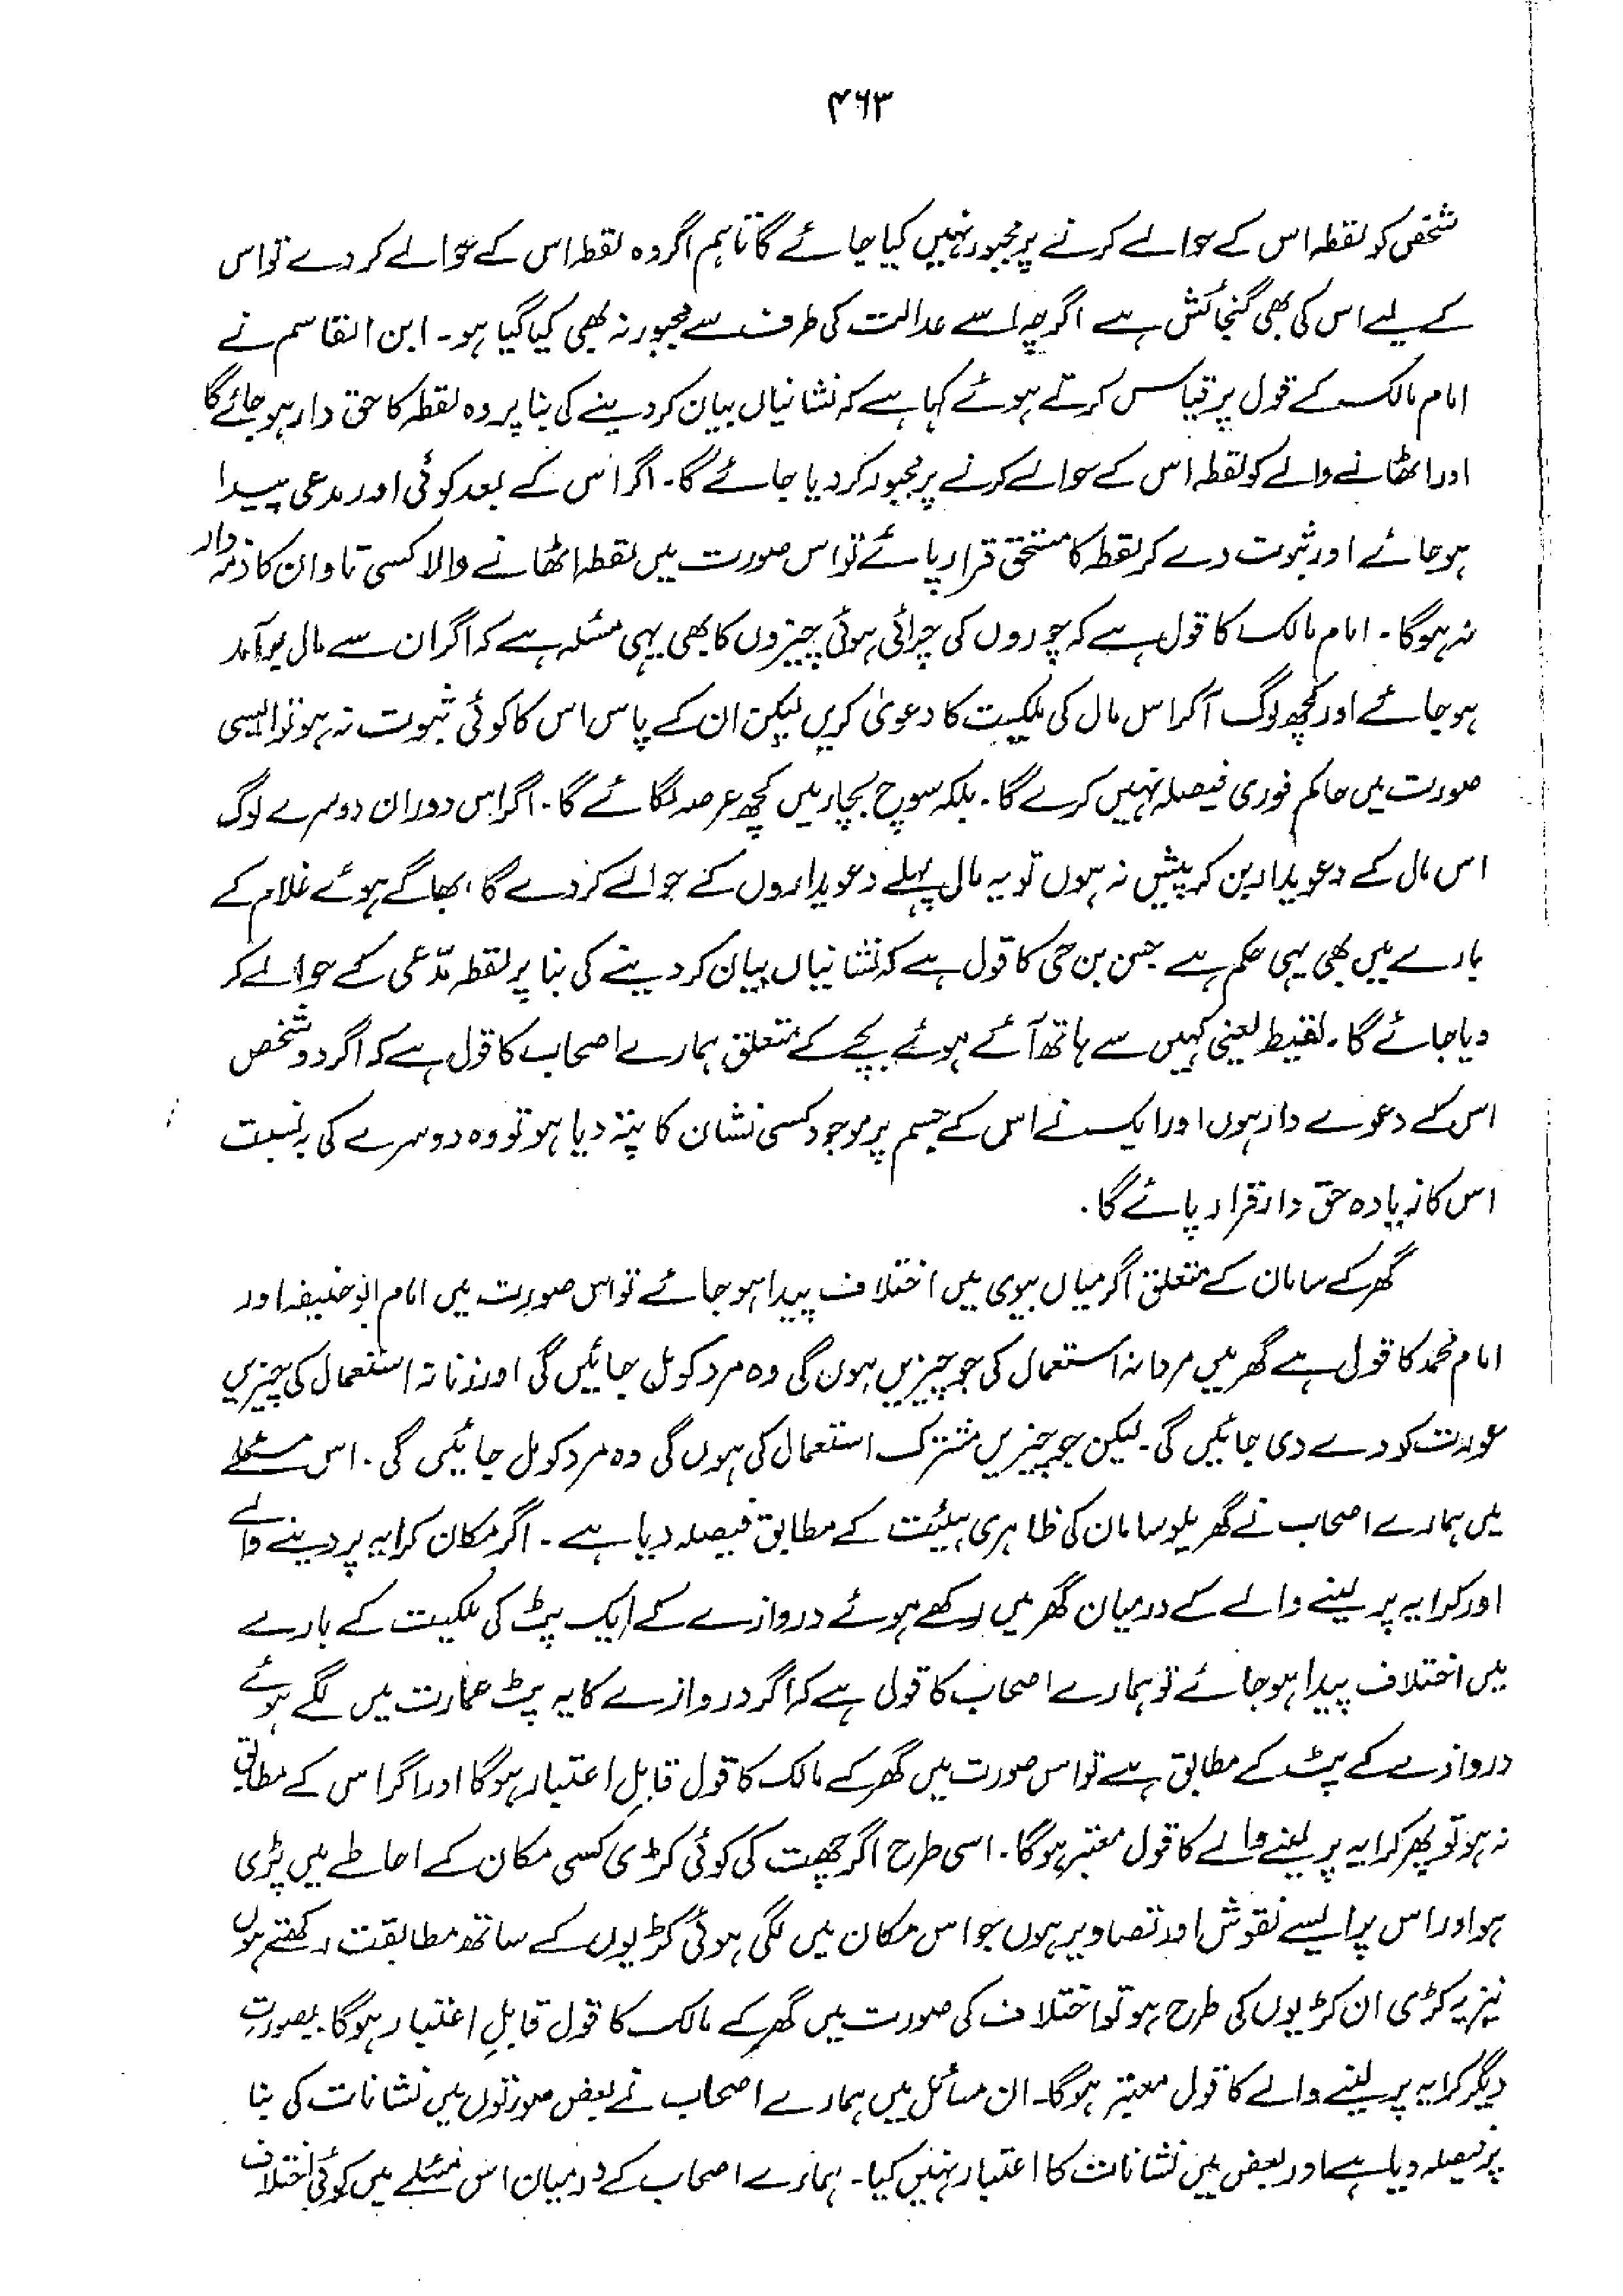 ۴۶۳
شخص کو لقطہ اس کے حوالے کرنے پر مجبور نہیں کیا جائے گا تاہم اگر وہ لقطہ اس کے حوالے کر دے تو اس
کے لیے اس کی بھی گنجائش ہے اگرچہ اسے عدالت کی طرف سے مجبور نہ بھی کیا گیا ہو۔ ابن القاسم نے
امام مالک کے قول پر قیاس کرتے ہوئے کہا ہے کہ نشانیاں بیان کر دینے کی بنا پر وہ لقطہ کا حق دار ہو جائے گا
اور اٹھانے والے کو لقطہ اس کے حوالے کرنے پر مجبور کر دیا جائے گا۔ اگر اس کے بعد کوئی اور مدعی پیدا
ہو جائے اور ثبوت دے کر لقطہ کا مستحق قرار پائے تو اس صورت میں لقطہ اٹھانے والا کسی تاوان کا ذمہ دار
نہ ہوگا۔ امام مالک کا قول ہے کہ چوروں کی چرائی ہوئی چیزوں کا بھی یہی مسئلہ ہے کہ اگر ان سے مال برآمد
ہو جائے اور کچھ لوگ آکر اس مال کی ملکیت کا دعویٰ کریں لیکن ان کے پاس اس کا کوئی ثبوت نہ ہو تو ایسی
صورت میں حاکم فوری فیصلہ نہیں کرے گا۔ بلکہ سوچ بچار میں کچھ عرصہ لگائے گا۔ اگر اس دوران دوسرے لوگ
اس مال کے دعویدار بن کر پیش نہ ہوں تو یہ مال پہلے دعویداروں کے حوالے کر دے گا، بھاگے ہوئے غلام کے
بارے میں بھی یہی حکم ہے حسن بن حی کا قول ہے کہ نشانیاں بیان کر دینے کی بنا پر لقطہ مدّعی کے حوالے کر
دیا جائے گا۔ لقیط یعنی کہیں سے ہاتھ آئے ہوئے بچے کے متعلق ہمارے اصحاب کا قول ہے کہ اگر دو شخص
اس کے دعوے دار ہوں اور ایک نے اس کے جسم پر موجود کسی نشان کا پتہ دیا ہو تو وہ دوسرے کی بہ نسبت
اس کا زیادہ حق دار قرار پائے گا۔
گھر کے سامان کے متعلق اگر میاں بیوی میں اختلاف پیدا ہو جائے تو اس صورت میں امام ابوحنیفہ اور
امام محمد کا قول ہے گھر میں مردانہ استعمال کی جو چیزیں ہوں گی وہ مرد کو مل جائیں گی اور زنانہ استعمال کی چیزیں
عورت کو دے دی جائیں گی۔ لیکن جو چیزیں مشترک استعمال کی ہوں گی وہ مرد کو مل جائیں گی۔ اس مسئلے
میں ہمارے اصحاب نے گھریلو سامان کی ظاہری ہیئت کے مطابق فیصلہ دیا ہے۔ اگر مکان کرایہ پر دینے والے
اور کرایہ پر لینے والے کے درمیان گھر میں رکھے ہوئے دروازے کے ایک پٹ کی ملکیت کے بارے
میں اختلاف پیدا ہو جائے تو ہمارے اصحاب کا قول ہے کہ اگر دروازے کا یہ پٹ عمارت میں لگے ہوئے
دروازے کے پٹ کے مطابق ہے تو اس صورت میں گھر کے مالک کا قول قابلِ اعتبار ہوگا اور اگر اس کے مطابق
نہ ہو تو پھر کرایہ پر لینے والے کا قول معتبر ہوگا۔ اسی طرح اگر چھت کی کوئی کڑی کسی مکان کے احاطے میں پڑی
ہو اور اس پر ایسے نقوش اور تصاویر ہوں جو اس مکان میں لگی ہوئی کڑیوں کے ساتھ مطابقت رکھتے ہوں
نیز یہ کڑی ان کڑیوں کی طرح ہو تو اختلاف کی صورت میں گھر کے مالک کا قول قابلِ اعتبار ہوگا بصورتِ
دیگر کرایہ پر لینے والے کا قول معتبر ہوگا۔ ان مسائل میں ہمارے اصحاب نے بعض صورتوں میں نشانات کی بنا
پر فیصلہ دیا ہے اور بعض میں نشانات کا اعتبار نہیں کیا۔ ہمارے اصحاب کے درمیان اس مسئلے میں کوئی اختلاف